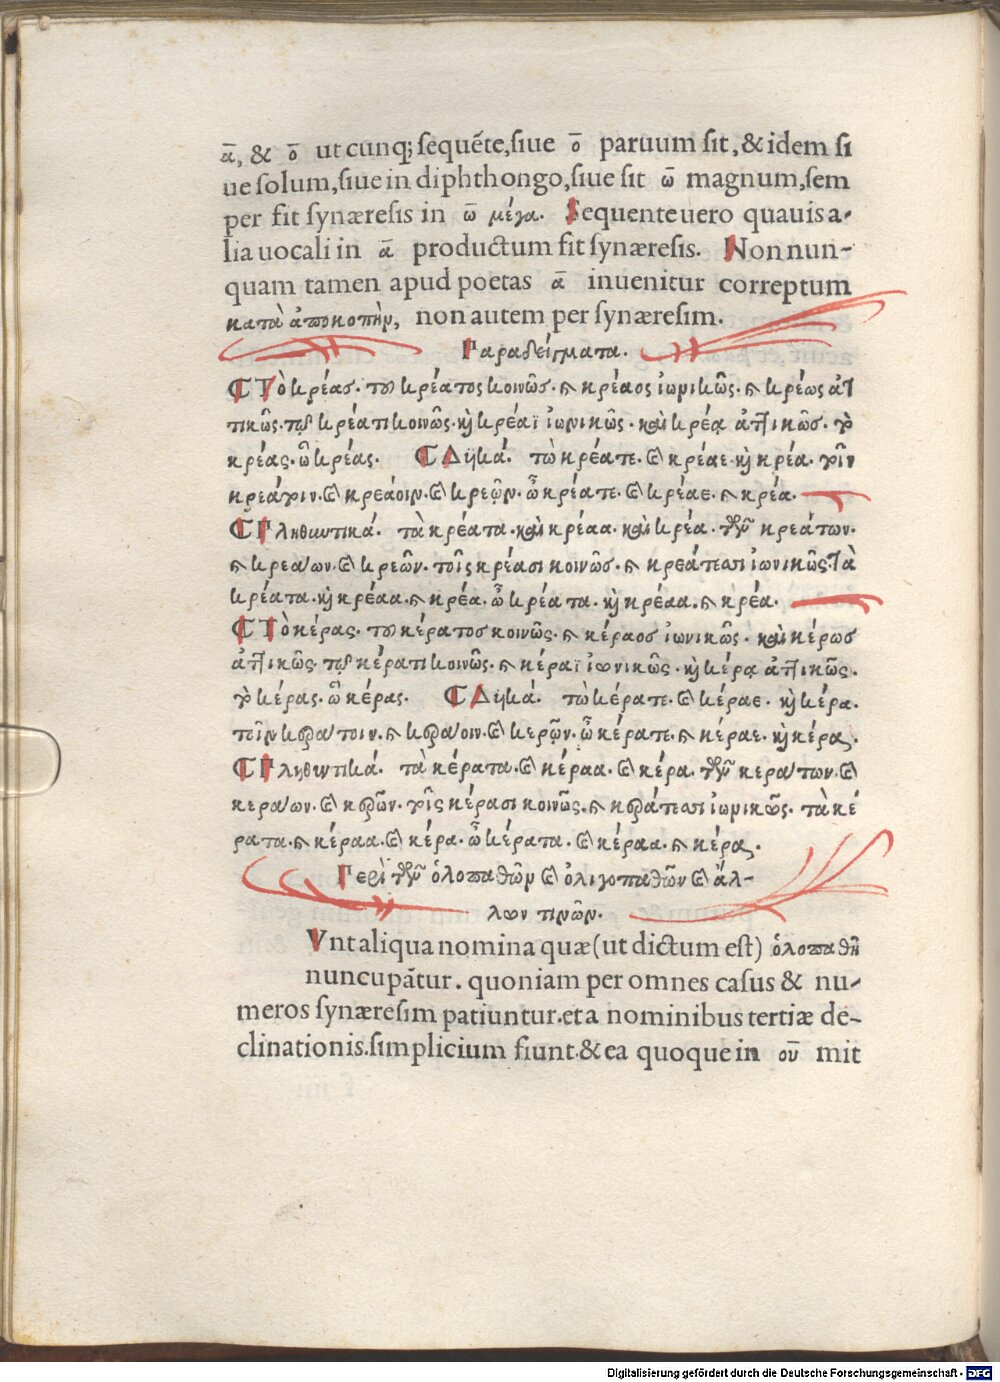 ᾱ, & ō ut cunqꝫ sequẽte, siue ō paruum sit, & idem si
ue solum, siue in diphthongo, siue sit ω̄ magnum, sem
per fit synæresis in ω̄ μέγα. Sequente uero quauis a-
lia uocali in ᾱ productum fit synæresis. Non nun-
quam tamen apud poetas ᾱ inuenitur correptum
κατὰ ἀποκοπὴν, non autem per synæresim.
Παραδείγματα.
Τὸ κρέας. τοῦ κρέατος κοινῶς. & κρέαος ἰωνικῶς. & κρέως ἀτ
τικῶς. τῷ κρέατι κοινῶς. κὴ κρέαϊ ἰωνικῶς. καὶ κρέᾳ ἀττικῶς. τὸ
κρέας. ὦ κρέας. Δυϊκά. τὼ κρέατε. & κρέαε. κὴ κρέα. τοῖν
κρεάτοιν. & κρεάοιν. & κρεῷν. ὦ κρέατε. & κρέαε. & κρέα.
Πληθυντικά. τὰ κρέατα. καὶ κρέαα. καὶ κρέα. τῶν κρεάτων.
& κρεάων. & κρεῶν. τοῖς κρέασι κοινῶς. & κρεάτεσι ἰωνικῶς. Τὰ
κρέατα. κὴ κρέαα. & κρέα. ὦ κρέατα. κὴ κρέαα. & κρέα.
Τὸ κέρας. τοῦ κέρατος κοινῶς. & κέραος ἰωνικῶς. καὶ κέρως
ἀττικῶς. τῷ κέρατι κοινῶς. & κέραϊ ἰωνικῶς. κὴ κέρᾳ ἀττικῶς.
τὸ κέρας. ὦ κέρας. Δυϊκά. τὼ κέρατε. & κέραε. κὴ κέρα.
τοῖν κεράτοιν. & κεράοιν. & κερῷν. ὦ κέρατε. & κέραε. κὴ κέρας.
Πληθυντικά. τὰ κέρατα. & κέραα. & κέρα. τῶν κεράτων. &
κεράων. & κερῶν. τοῖς κέρασι κοινῶς. & κεράτεσι ἰωνικῶς. τὰ κέ
ρατα. & κέραα. & κέρα. ὦ κέρατα. & κέραα. & κέρας.
Περὶ τῶν ὁλοπαθῶν & ὀλιγοπαθῶν & ἄλ-
λων τινῶν.
Vnt aliqua nomina quæ (ut dictum est) ὁλοπαθῆ
nuncupãtur. quoniam per omnes casus & nu-
meros synæresim patiuntur. et a nominibus tertiæ de-
clinationis. simplicium fiunt. & ea quoque in οῡ mit
Digitalisierung gefördert durch die Deutsche Forschungsgemeinschaft - DFG